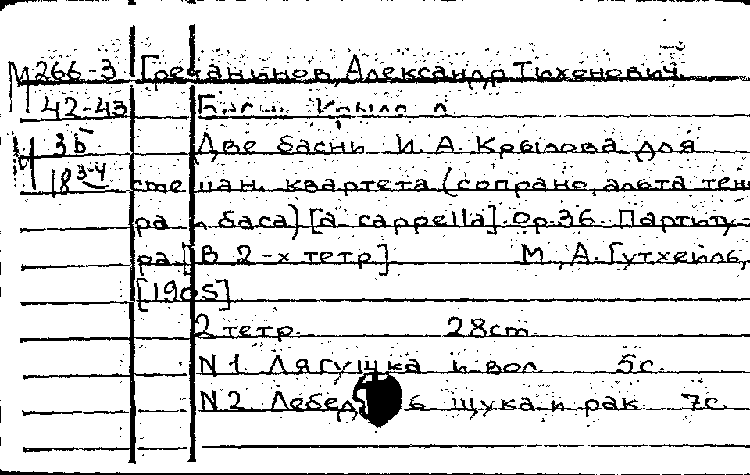 М266-3 Гречанинов, Александр Тихонович.
42-43
М 35 Две басни И. А. Крылова для
18 3-4 смешан. квартета (сопрано, альта тено
ра и баса) [a cappella]. Op. 36. Партиту-
ра [В 2-х тетр.] М., А. Гутхейль,
[1905]
2 тетр. 28cm.
N 1 Лягушка и вол 5с.
N 2 Лебедь щука и рак 7с.